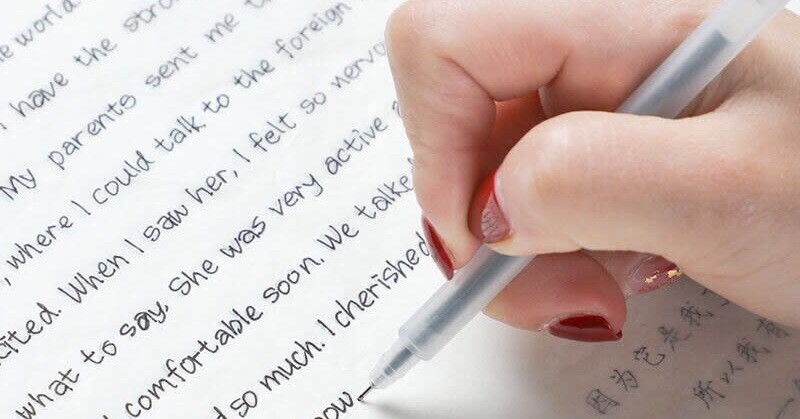 e world
I have the stro
My parents sent me t
, where I could talk to the foreign
cited. When I saw her, I felt so nervo
what to say. She was very active a
comfortable soon. We talke
d so much. I cherished
now
因为它是我
所以我有